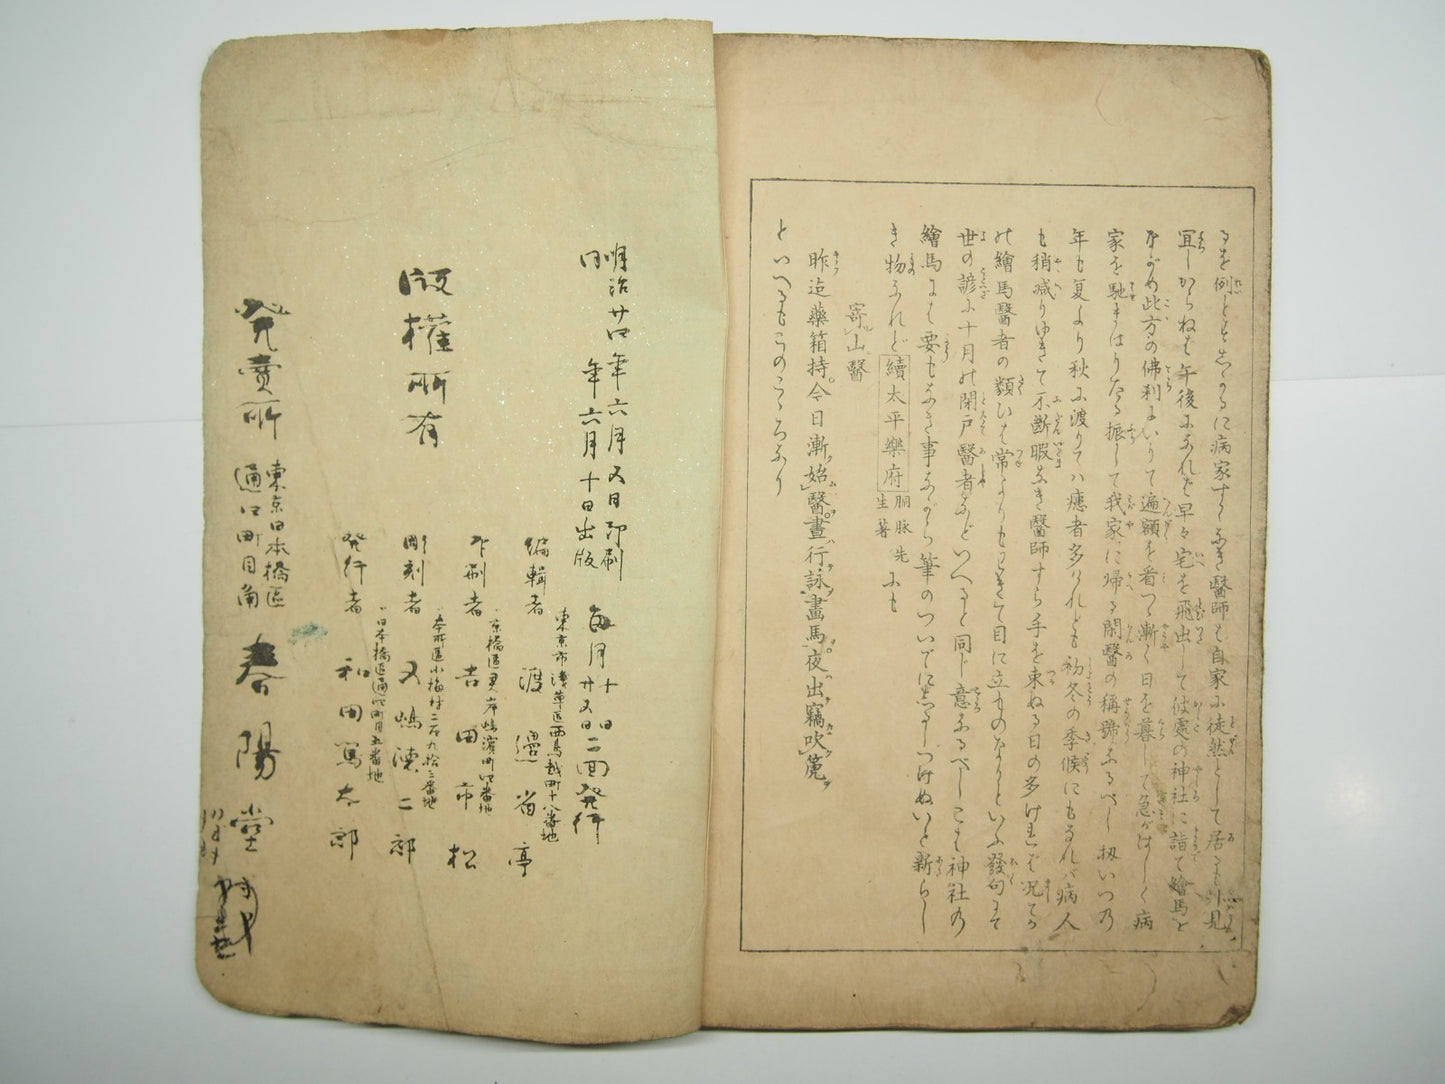 るを例とも志かるに病家すくなき醫師も自家に徒然として居るも外見
宜しからねば午後になれば早々宅を飛出して彼處の神社に詣て繪馬を
ながめ此方の佛刹にいりて遍額を看つゝ漸く日を暮して急がはしく病
家を馳まはりたる振して我家に帰る閑醫の稱號なるべし扨いつの
年も夏より秋に渡りてハ瘧者多けれども初冬の季候にもなれバ病人
も稍減りゆきて不断暇なき醫師すら手を束ぬる日の多ければ况てか
の繪馬醫者の類ひは常よりも
て目に立ものなりといふ發句にて
世の諺に十月の閉戸醫者などいへると同じ意なるべしこは神社の
繪馬には要もなき事ながら筆のついでに志るしつけぬいと新らし
き物なれど續太平樂府胴脉先生著にも
寄山醫
昨迄藥箱持今日漸始醫晝行詠畫馬夜出竊吹篪
といへるもこのこゝろなり
明治廿四年六月又日印刷
同年六月十日出版
毎月十日廿又日二回発行
版權所有
編輯者
東京市淺草區西鳥越町十八番地
渡邊省亭
印刷者
京橋區霊岸嶋濱町四番地
吉田市松
彫刻者
本所區小梅村二百九拾三番地
又嶋
二郎
発行者
日本橋區通四町目五番地
和田篤太郎
発賣所
東京日本橋區
通四町目角
春陽堂